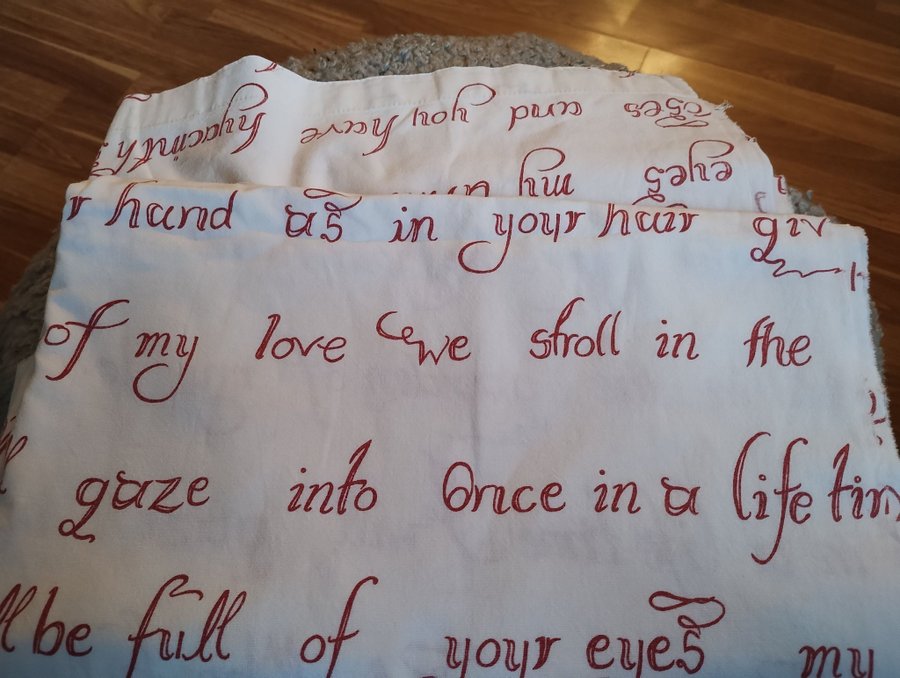 and you have hyacinth
eyes my
hand as in your hair
of my love we stroll in the
gaze into Once in a life tim
ll be full of your eyes my